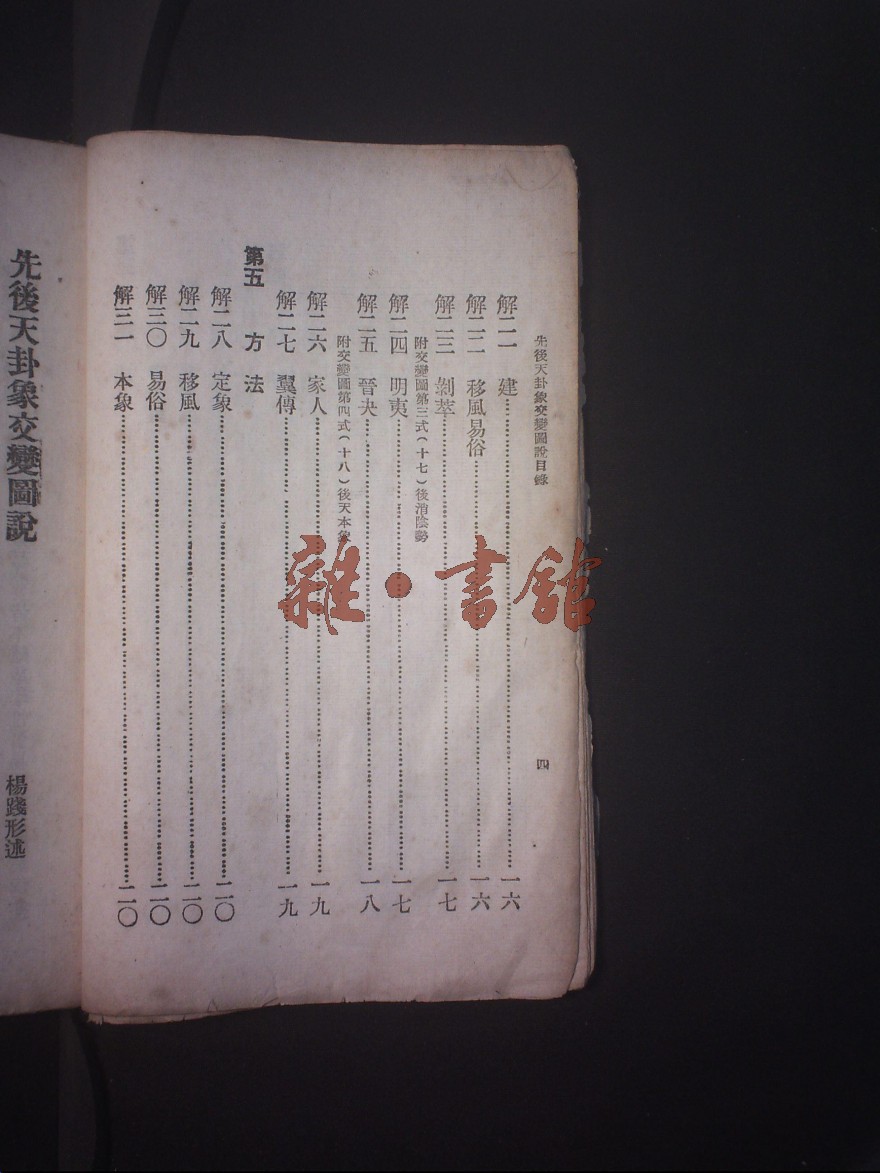 先後天卦象交變圖說目錄
四
解二一 建 一六
解二二 移風易俗 一六
解二三 剝萃 一七
附交變圖第三式(十七)後消陰勢
解二四 明夷 一七
解二五 晉夬 一八
附交變圖第四式(十八)後天本象
解二六 家人 一九
解二七 翼傳 一九
第五 方法
解二八 定象 二〇
解二九 移風 二〇
解三〇 易俗 二〇
解三一 本象 二〇
先後天卦象交變圖說
楊踐形述
雜·書館